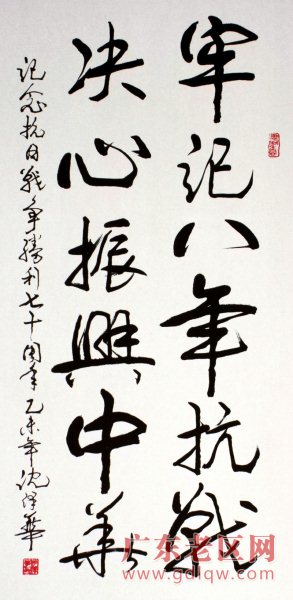 牢记八年抗战
决心振興中华
记念抗日战争勝利七十周年乙未年沈泽華
广东老区网
www.gdlqw.com